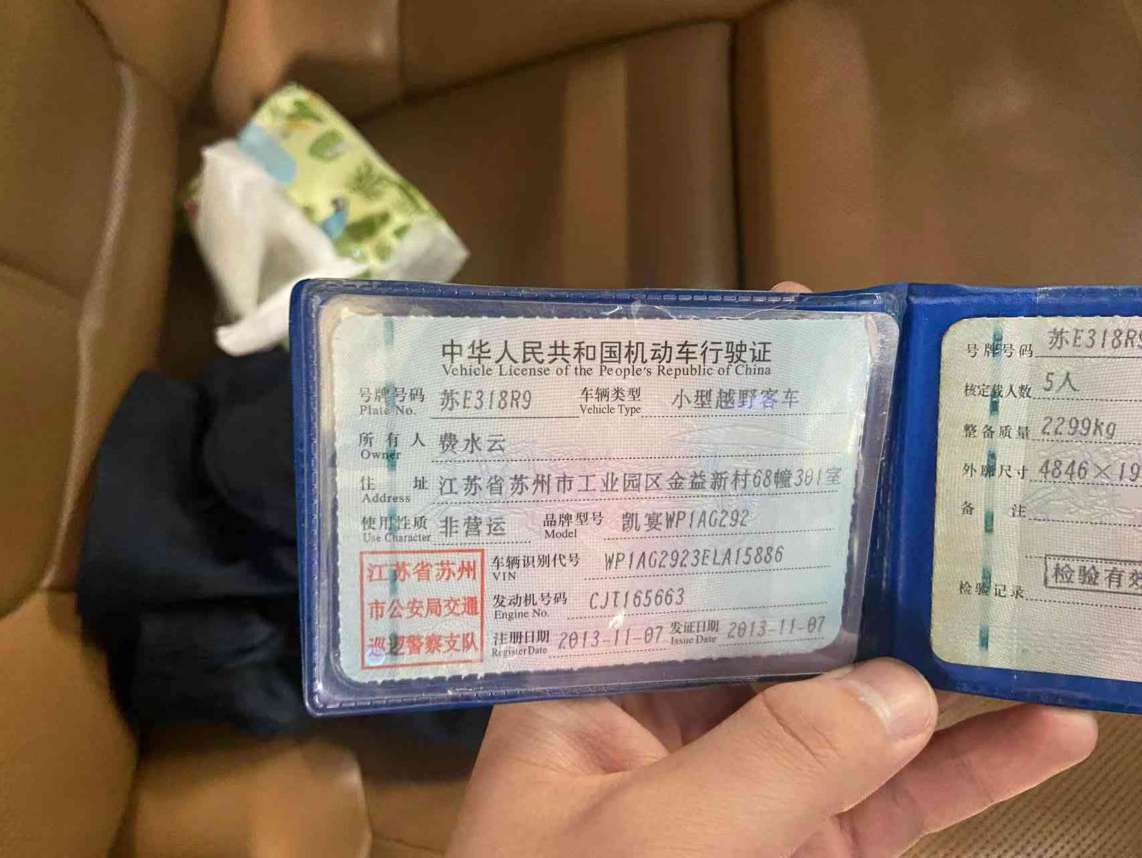 中华人民共和国机动车行驶证
Vehicle License of the People's Republic of China
号牌号码 苏E318R9 车辆类型 小型越野客车
Plate No. Vehicle Type
所有人 费水云
Owner
住址 江苏省苏州市工业园区金益新村68幢301室
Address
使用性质 非营运 品牌型号 凯宴WP1AG292
Use Character Model
江苏省苏州
市公安局交通
巡逻警察支队
车辆识别代号 WP1AG2923ELA15886
VIN
发动机号码 CJT165663
Engine No.
注册日期 2013-11-07 发证日期 2013-11-07
Register Date Issue Date
号牌号码 苏E318R9
核定载人数 5人
整备质量 2299kg
外廓尺寸 4846×19
备注
检验有效
检验记录